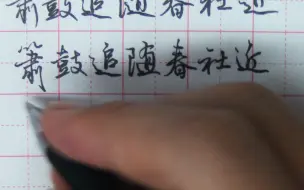 箫鼓追随春社近
箫鼓追随春社近